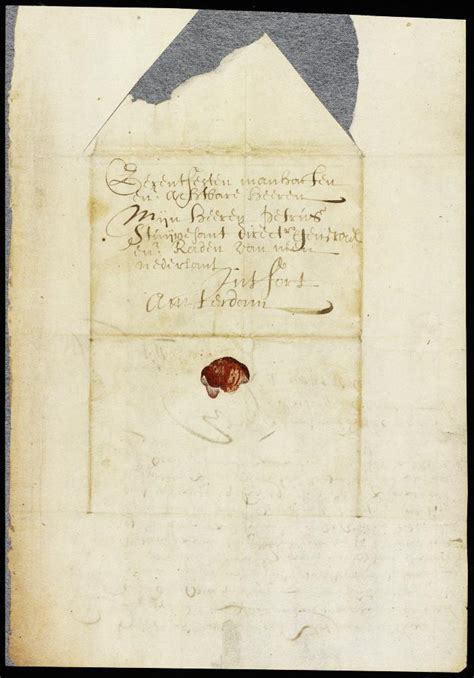 Erentfesten manhaeften
en: Achtbare Heeren
Mijn Heeren Petrus
Stuijvesant direct: Generael
en: Raden van nieu
nederlant
Int fort
Amsterdam